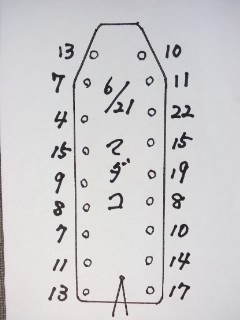 13 10
7 6/21 11
4 22
15 マ 15
9 ダ 19
8 コ 8
7 10
11 14
13 17